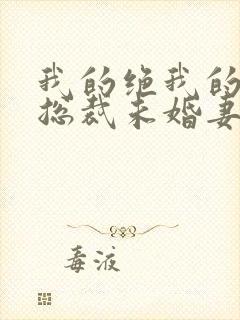 我的绝我的
总裁未婚妻
毒液